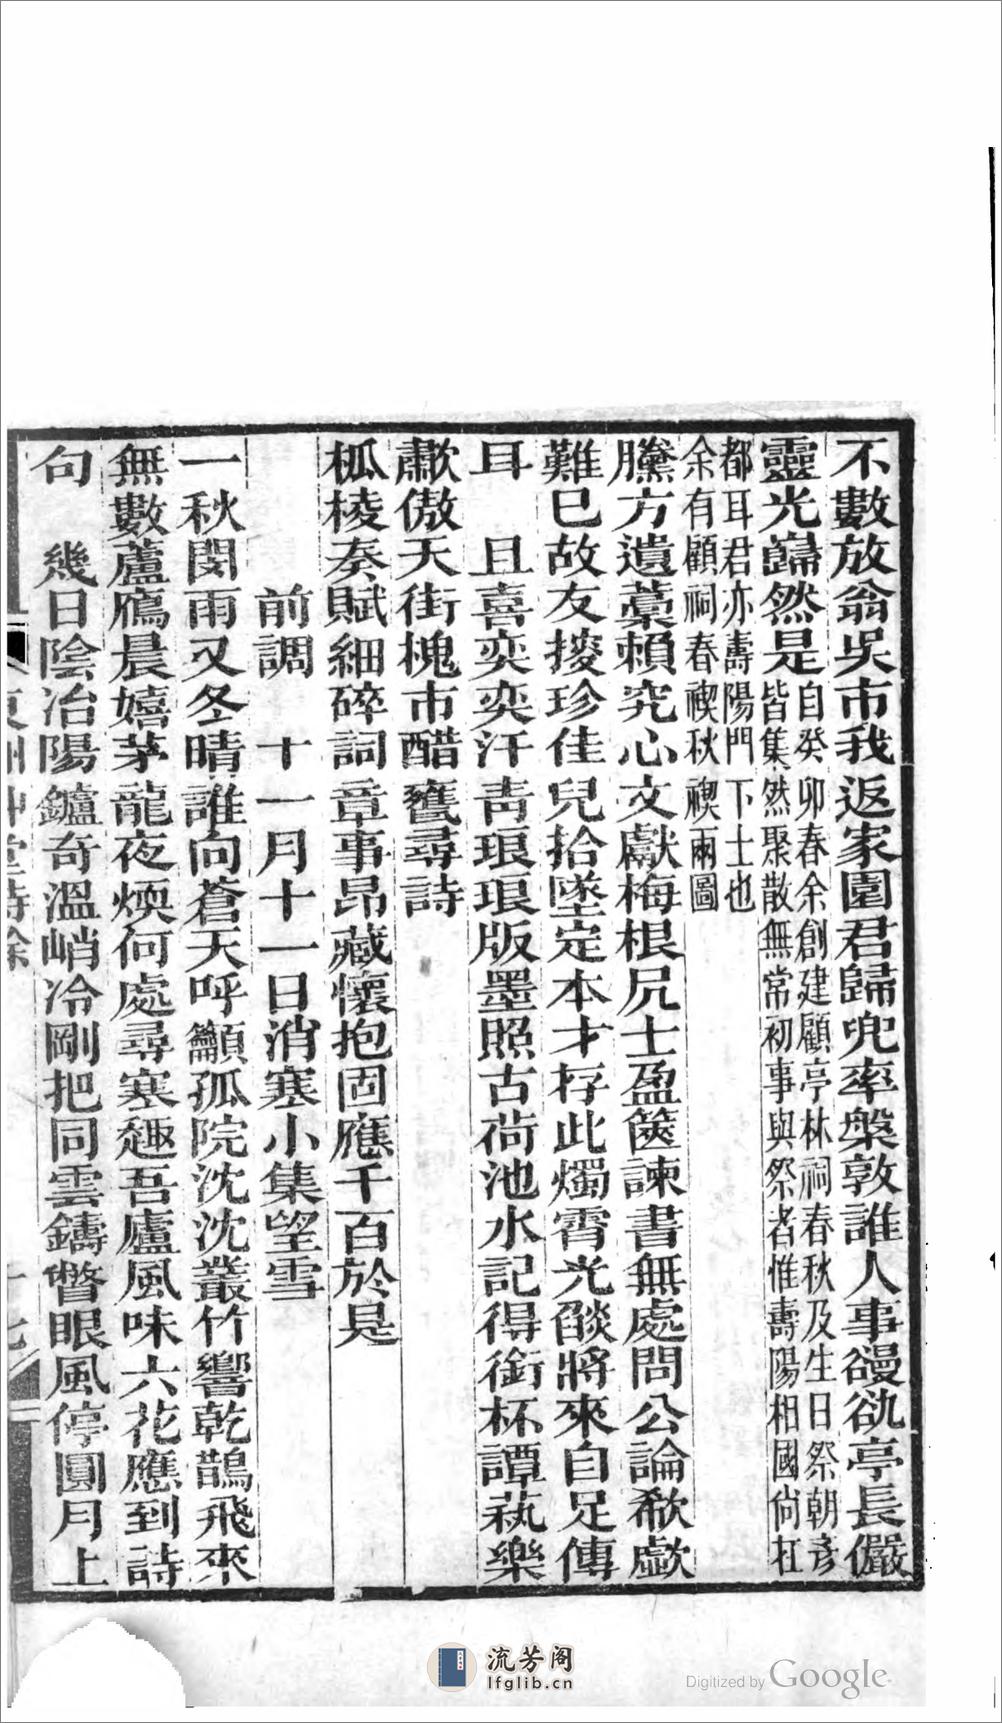 不數放翁吳市我返家園君歸兜率槃敦誰人事謾欲亭長儼
靈光巋然是自癸卯春余創建顧亭林祠春秋及生日祭朝彥
皆集然聚散無常初事與祭者惟壽陽相國尙在
都耳君亦壽陽門下士也
余有顧祠春禊秋禊兩圖
騰方遺藁賴究心文獻梅根凥士盈篋諫書無處問公論欷歔
難已故友㨗珍佳兒拾墜定本才存此燭霄光燄將來自足傳
耳　且喜奕奕汗靑琅琅版墨照古荷池水記得銜杯譚蓺樂
歗傲天街槐市醋甕尋詩
柧棱奏賦細碎詞章事昂藏懷抱固應千百於是
前調　十一月十一日消寒小集望雪
一秋閔雨又冬晴誰向蒼天呼籲孤院沈沈叢竹響乾鵲飛來
無數蘆鴈晨嬉茅龍夜煥何處尋寒趣吾廬風味六花應到詩
句　幾日陰冶陽鑪奇溫峭冷剛把同雲鑄瞥眼風停圓月上
流芳阁
lfglib.cn
Digitized by Google